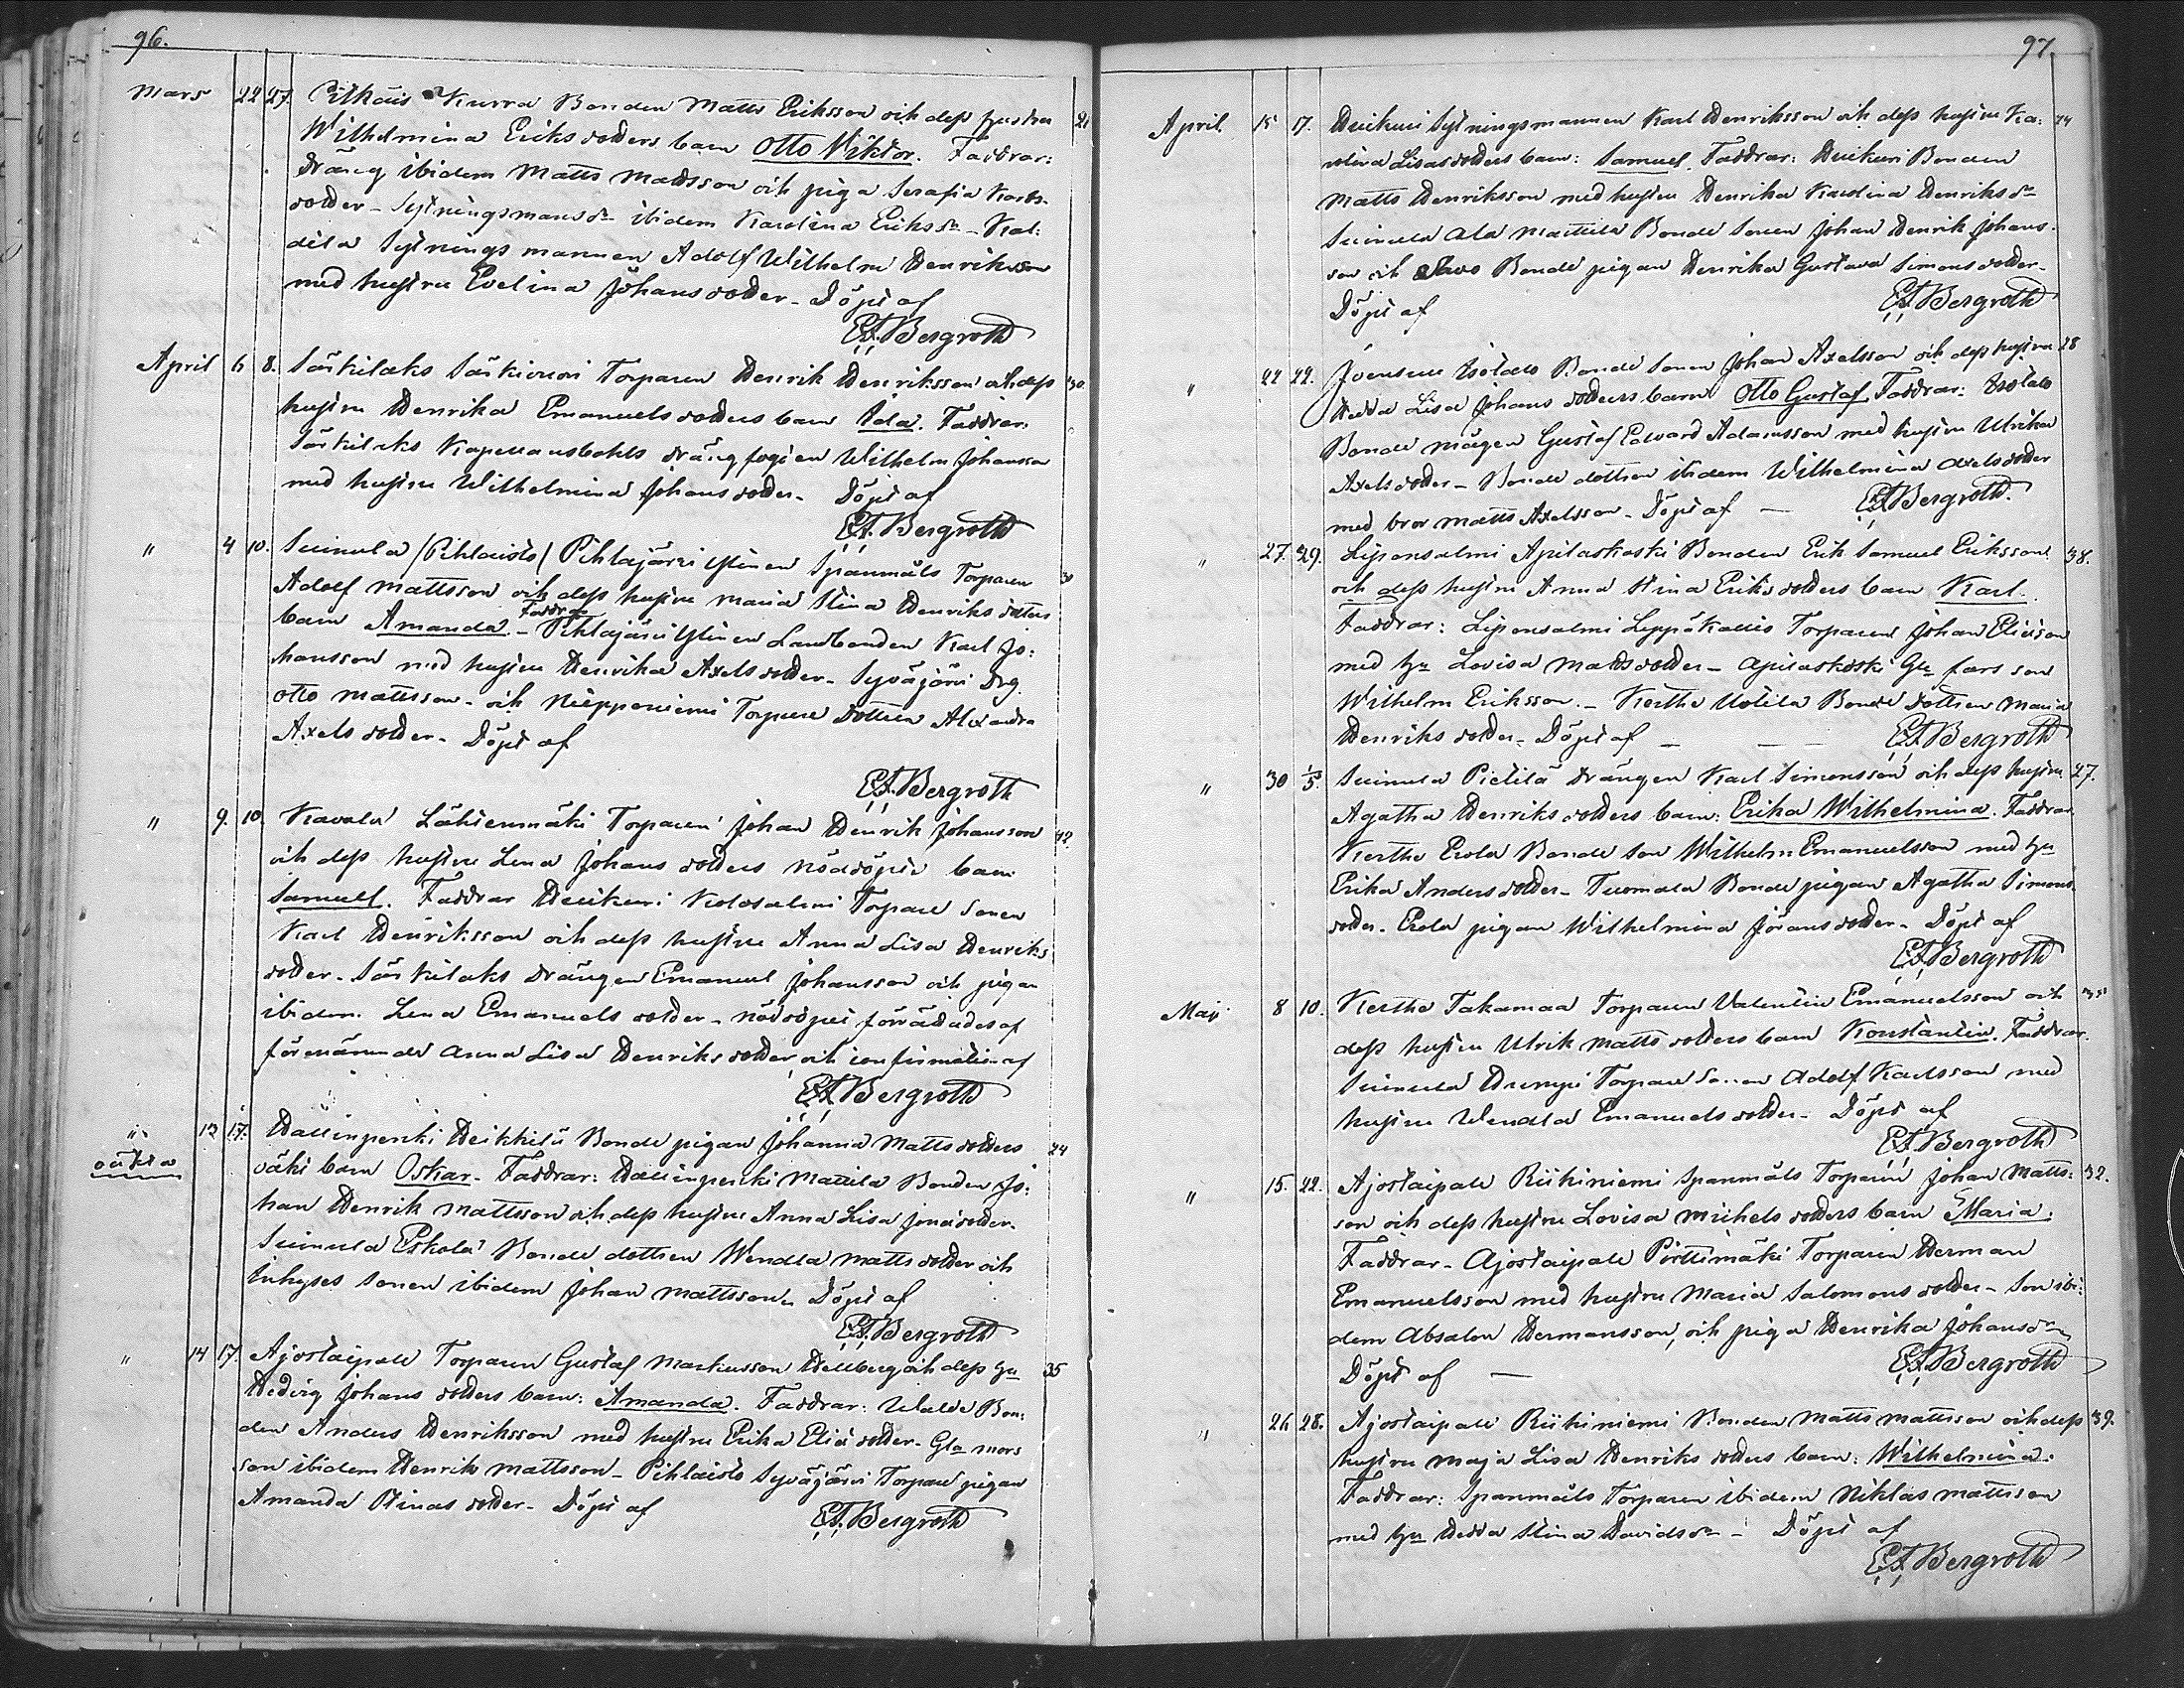 96.
Mars 22 27. Pitkäis Kurra Bonden Matts Eriksson och dess hustru 21
Wilhelmina Eriksdotters barn Otto Viktor. Faddrar:
Dräng ibidem Matts Mattsson och piga Serafia Karls-
dotter - Sytningsmansdr ibidem Karolina Eriksdr - Kal-
dila Sytningsmannen Adolf Wilhelm Henriksson
med hustru Evelina Johansdotter - Döpt af
E.F. Bergroth
April 6 8. Särkilaks Särkivuori Torparen Henrik Henriksson och dess 30.
hustru Henrika Emanuelsdotters barn Ida. Faddrar:
Särkilaks Kapellansbohls drängfogden Wilhelm Johansson
med hustru Wilhelmina Johansdotter - Döpt af
E.F. Bergroth
" 4 10. Suinula /Pihlaisto/ Pihlajärvi Ylinen Spanmåls Torparen 30
Adolf Mattsson och dess hustru Maria Stina Henriksdotters
Faddrar
barn Amanda - Pihlajärvi Ylinen Landbonden Karl Jo-
hansson med hustru Henrika Axelsdotter - Syväjärvi Drg
Otto Mattsson - och Niepponiemi Torpare dottren Alexandra
Axelsdotter - Döpt af
E.F. Bergroth
" 9. 10. Kavala Lähienmäki Torparen Johan Henrik Johansson 42.
och dess hustru Lena Johansdotters nöddöpte barn
Samuel. Faddrar Heikuri Kolosalmi Torpare sonen
Karl Henriksson och dess hustru Anna Lisa Henriks-
dotter - Särkilaks drängen Emanuel Johansson och pigan
ibidem Lena Emanuelsdotter - nöddopet förrättades af
förenämnda Anna Lisa Henriksdotter och confirmation af
E.F. Bergroth
" 12 17. Hallinpenki Heikkilä Bonde pigan Johanna Mattsdotters 24
oäkta
oäkt barn Oskar. Faddrar: Hallinpenki Mattila Bonden Jo-
han Henrik Mattsson och dess hustru Anna Lisa Jonædotter.
Suinula Eskola Bonde dottren Wendla Mattsdotter och
Inhyses sonen ibidem Johan Mattsson. Döpt af
E.F. Bergroth
" 14 17. Ajostaipale Torparen Gustaf Markusson Hellberg och dess hu 35
Hedvig Johansdotters barn: Amanda. Faddrar: Uhalde Bon-
den Anders Henriksson med hustru Erika Eliædotter - Gla mors
son ibidem Henrik Mattsson - Pihlaisto Syväjärvi Torpare pigan
Amanda Stinasdotter - Döpt af
E.F. Bergroth
97.
April 15 17. Heikuri Sytningsmannen Karl Henriksson och dess hustru Ka- 44
rolina Lisasdotters barn: Samuel. Faddrar: Heikuri Bonden
Matts Henriksson med hustru Henrika Karolina Henriksdr
Suinula Ala Mattila Bonde sonen Johan Henrik Johans-
son och Savo Bonde pigan Henrika Gustava Simonsdotter -
Döpt af E.F. Bergroth
" 22 22. Joensuu Isotalo Bonde sonen Johan Axelsson och dess hustru 28
Hedda Lisa Johansdotters barn Otto Gustaf. Faddrar: Isotalo
Bonde mågen Gustaf Edvard Adamsson med hustru Ulrika
Axelsdotter - Bonde dottren ibidem Wilhelmina Axelsdotter
med bror Matts Axelsson - Döpt af — E.F. Bergroth.
" 27. 29. Liponsalmi Apilaskoski Bonden Erik Samuel Eriksson 38.
och dess hustru Anna Stina Eriksdotters barn Karl.
Faddrar: Liponsalmi Leppäkallio Torparen Johan Eliasson
med hu Lovisa Mattsdotter - Apilaskoski Gla fars son
Wilhelm Eriksson. - Kertte Uotila Bonde dottren Maria
Henriksdotter - Döpt af — E.F. Bergroth
" 30 1/5. Suinula Pietilä Drängen Karl Simonsson och dess hustru 27.
Agatha Henriksdotters barn: Erika Wilhelmina. Faddrar.
Kertte Erola Bonde son Wilhelm Emanuelsson med hu
Erika Andersdotter - Tuomala Bonde pigan Agatha Simons-
dotter - Erola pigan Wilhelmina Göransdotter - Döpt af
E.F. Bergroth
Maj 8 10. Kertte Takamaa Torparen Valentin Emanuelsson och
dess hustru Ulrik Mattsdotters barn Konstantin. Faddrar.
Suinula Humpi Torpare sonen Adolf Karlsson med
hustru Wendla Emanuelsdotter - Döpt af
E.F. Bergroth
" 15. 22. Ajostaipale Riihiniemi Spanmåls Torparen Johan Matts- 32.
son och dess hustru Lovisa Michelsdotters barn Maria.
Faddrar - Ajostaipale Pirttimäki Torparen Herman
Emanuelsson med hustru Maria Salomonsdotter - Son ibi-
dem Absalon Hermansson, och piga Henrika Johansdr
Döpt af — E.F. Bergroth
" 26 28. Ajostaipale Riihiniemi Bonden Matts Mattsson och dess 39.
hustru Maja Lisa Henriksdotters barn: Wilhelmina.
Faddrar: Spanmåls Torparen ibidem Niklas Mattsson
med hu Hedda Stina Davidsdr - Döpt af
E.F. Bergroth